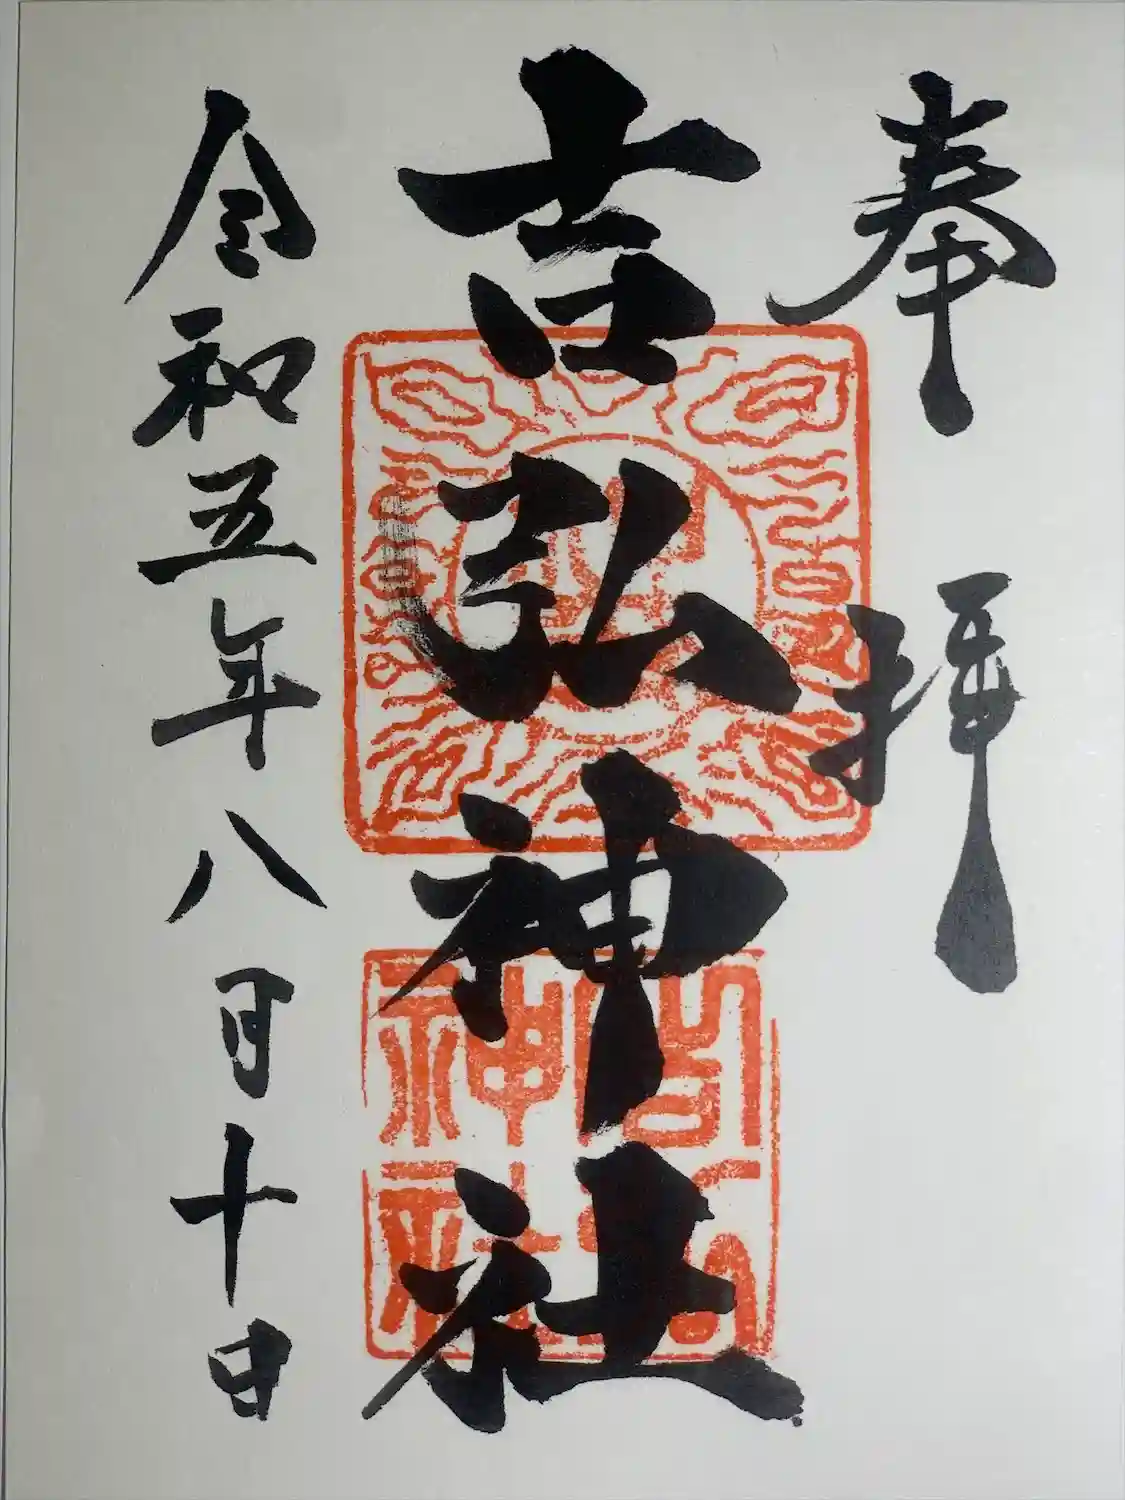 奉拝
吉弘神社
令和五年八月十日
吉弘
神社